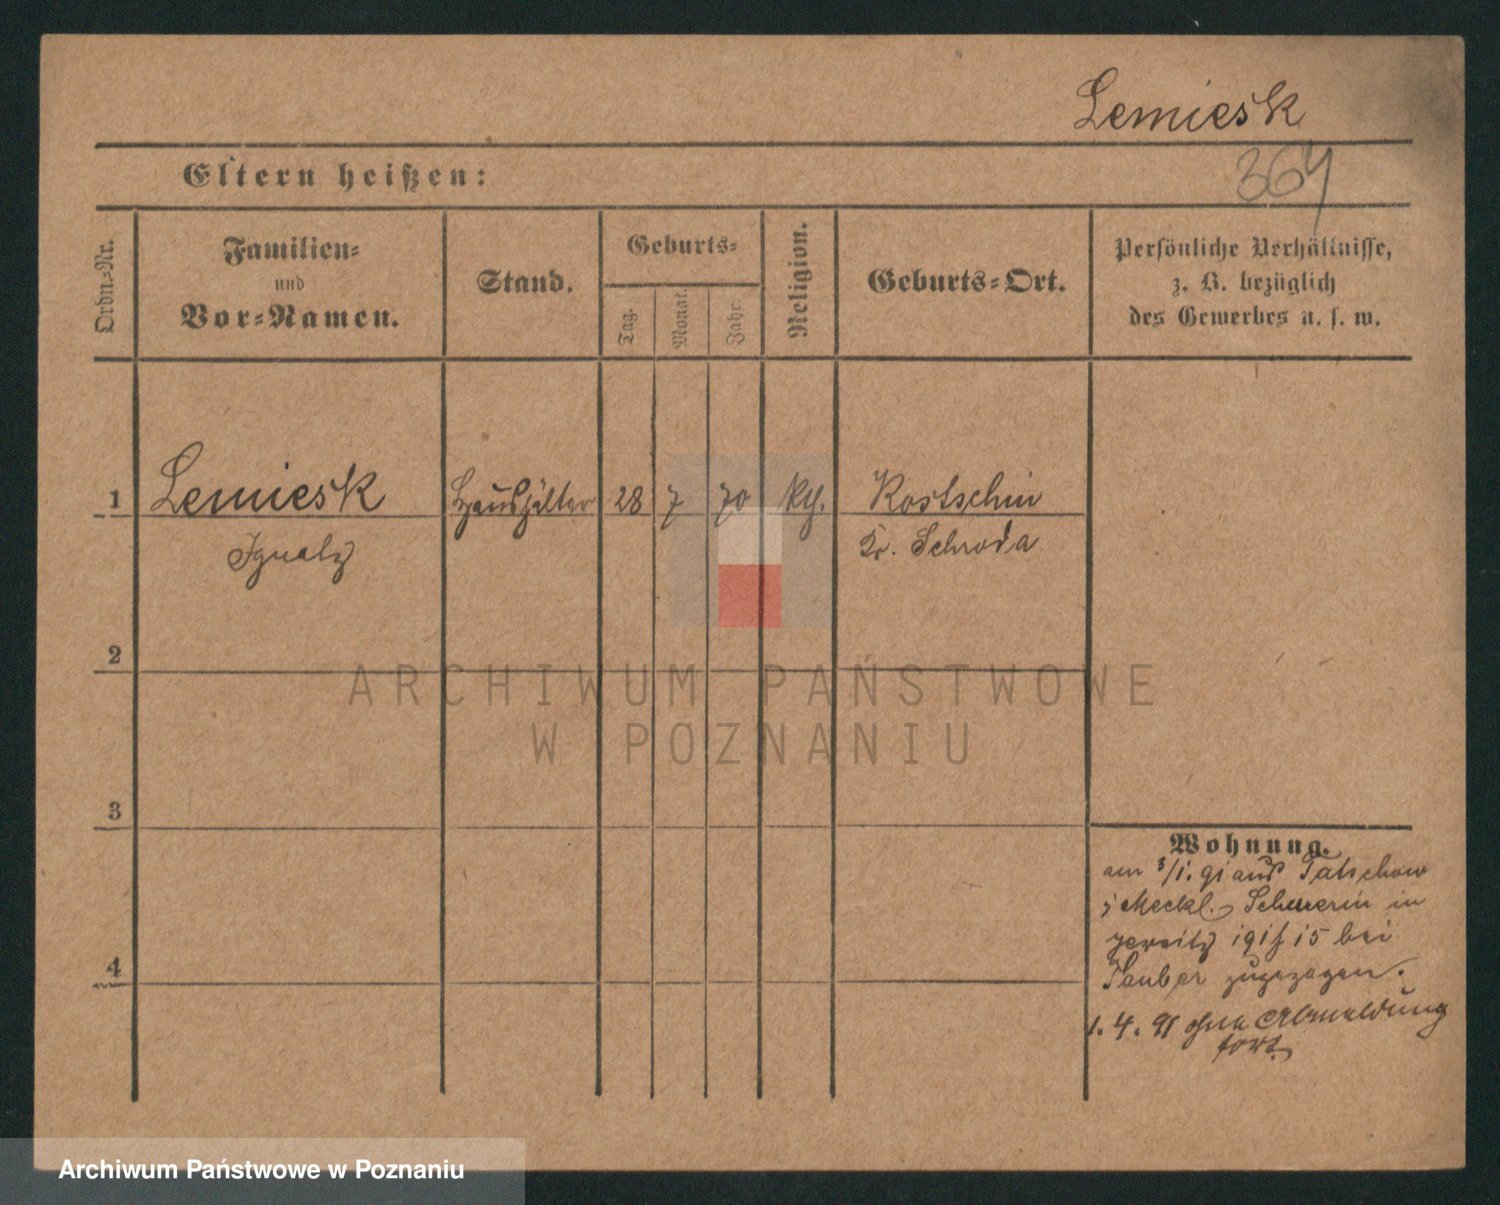 Lemiesk
364
Eltern heißen:
Ordn.-Nr.
Familien-
und
Vor-Namen.
Stand.
Geburts-
Tag.
Monat.
Jahr.
Religion.
Geburts-Ort.
Persönliche Verhältnisse,
z. B. bezüglich
des Gewerbes u. s. w.
1 Lemiesk Haushälter 28 7 70 kth. Kostschin
Ignatz Kr. Schroda
2
3
4
Wohnung.
am 3/1. 91 aus Tatschow
i Meckl. Schwerin in
Jersitz 15 bei
Tauber zugezogen.
1. 4. 91 ohne Abmeldung
fort.
ARCHIWUM PAŃSTWOWE
W POZNANIU
Archiwum Państwowe w Poznaniu